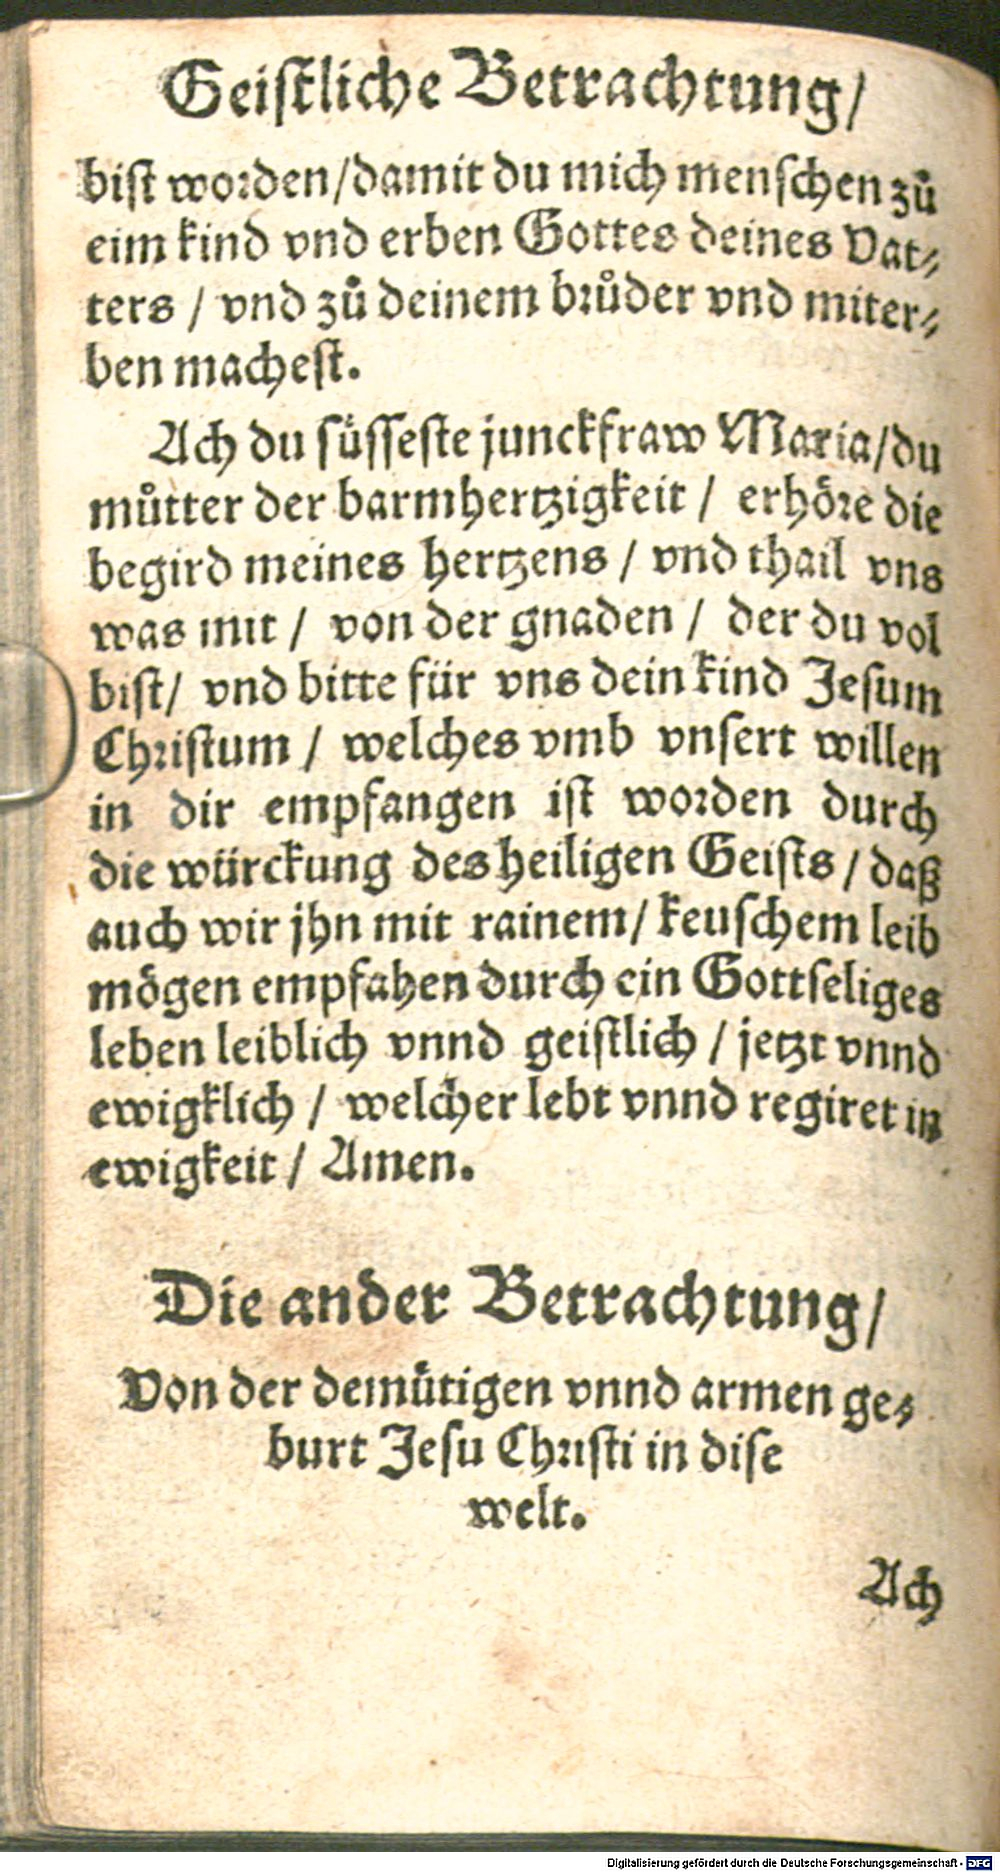 Geistliche Betrachtung/
bist worden/damit du mich menschen zů
eim kind vnd erben Gottes deines Vat⸗
ters / vnd zů deinem brůder vnd miter⸗
ben machest.
Ach du süsseste junckfraw Maria/du
můtter der barmhertzigkeit / erhöre die
begird meines hertzens / vnd thail vns
was mit / von der gnaden / der du vol
bist/ vnd bitte für vns dein kind Jesum
Christum / welches vmb vnsert willen
in dir empfangen ist worden durch
die würckung des heiligen Geists / daß
auch wir jhn mit rainem/ keuschem leib
mögen empfahen durch ein Gottseliges
leben leiblich vnnd geistlich / jetzt vnnd
ewigklich / welcher lebt vnnd regiret in
ewigkeit / Amen.
Die ander Betrachtung/
Von der demütigen vnnd armen ge⸗
burt Jesu Christi in dise
welt.
Ach
Digitalisierung gefördert durch die Deutsche Forschungsgemeinschaft - DFG